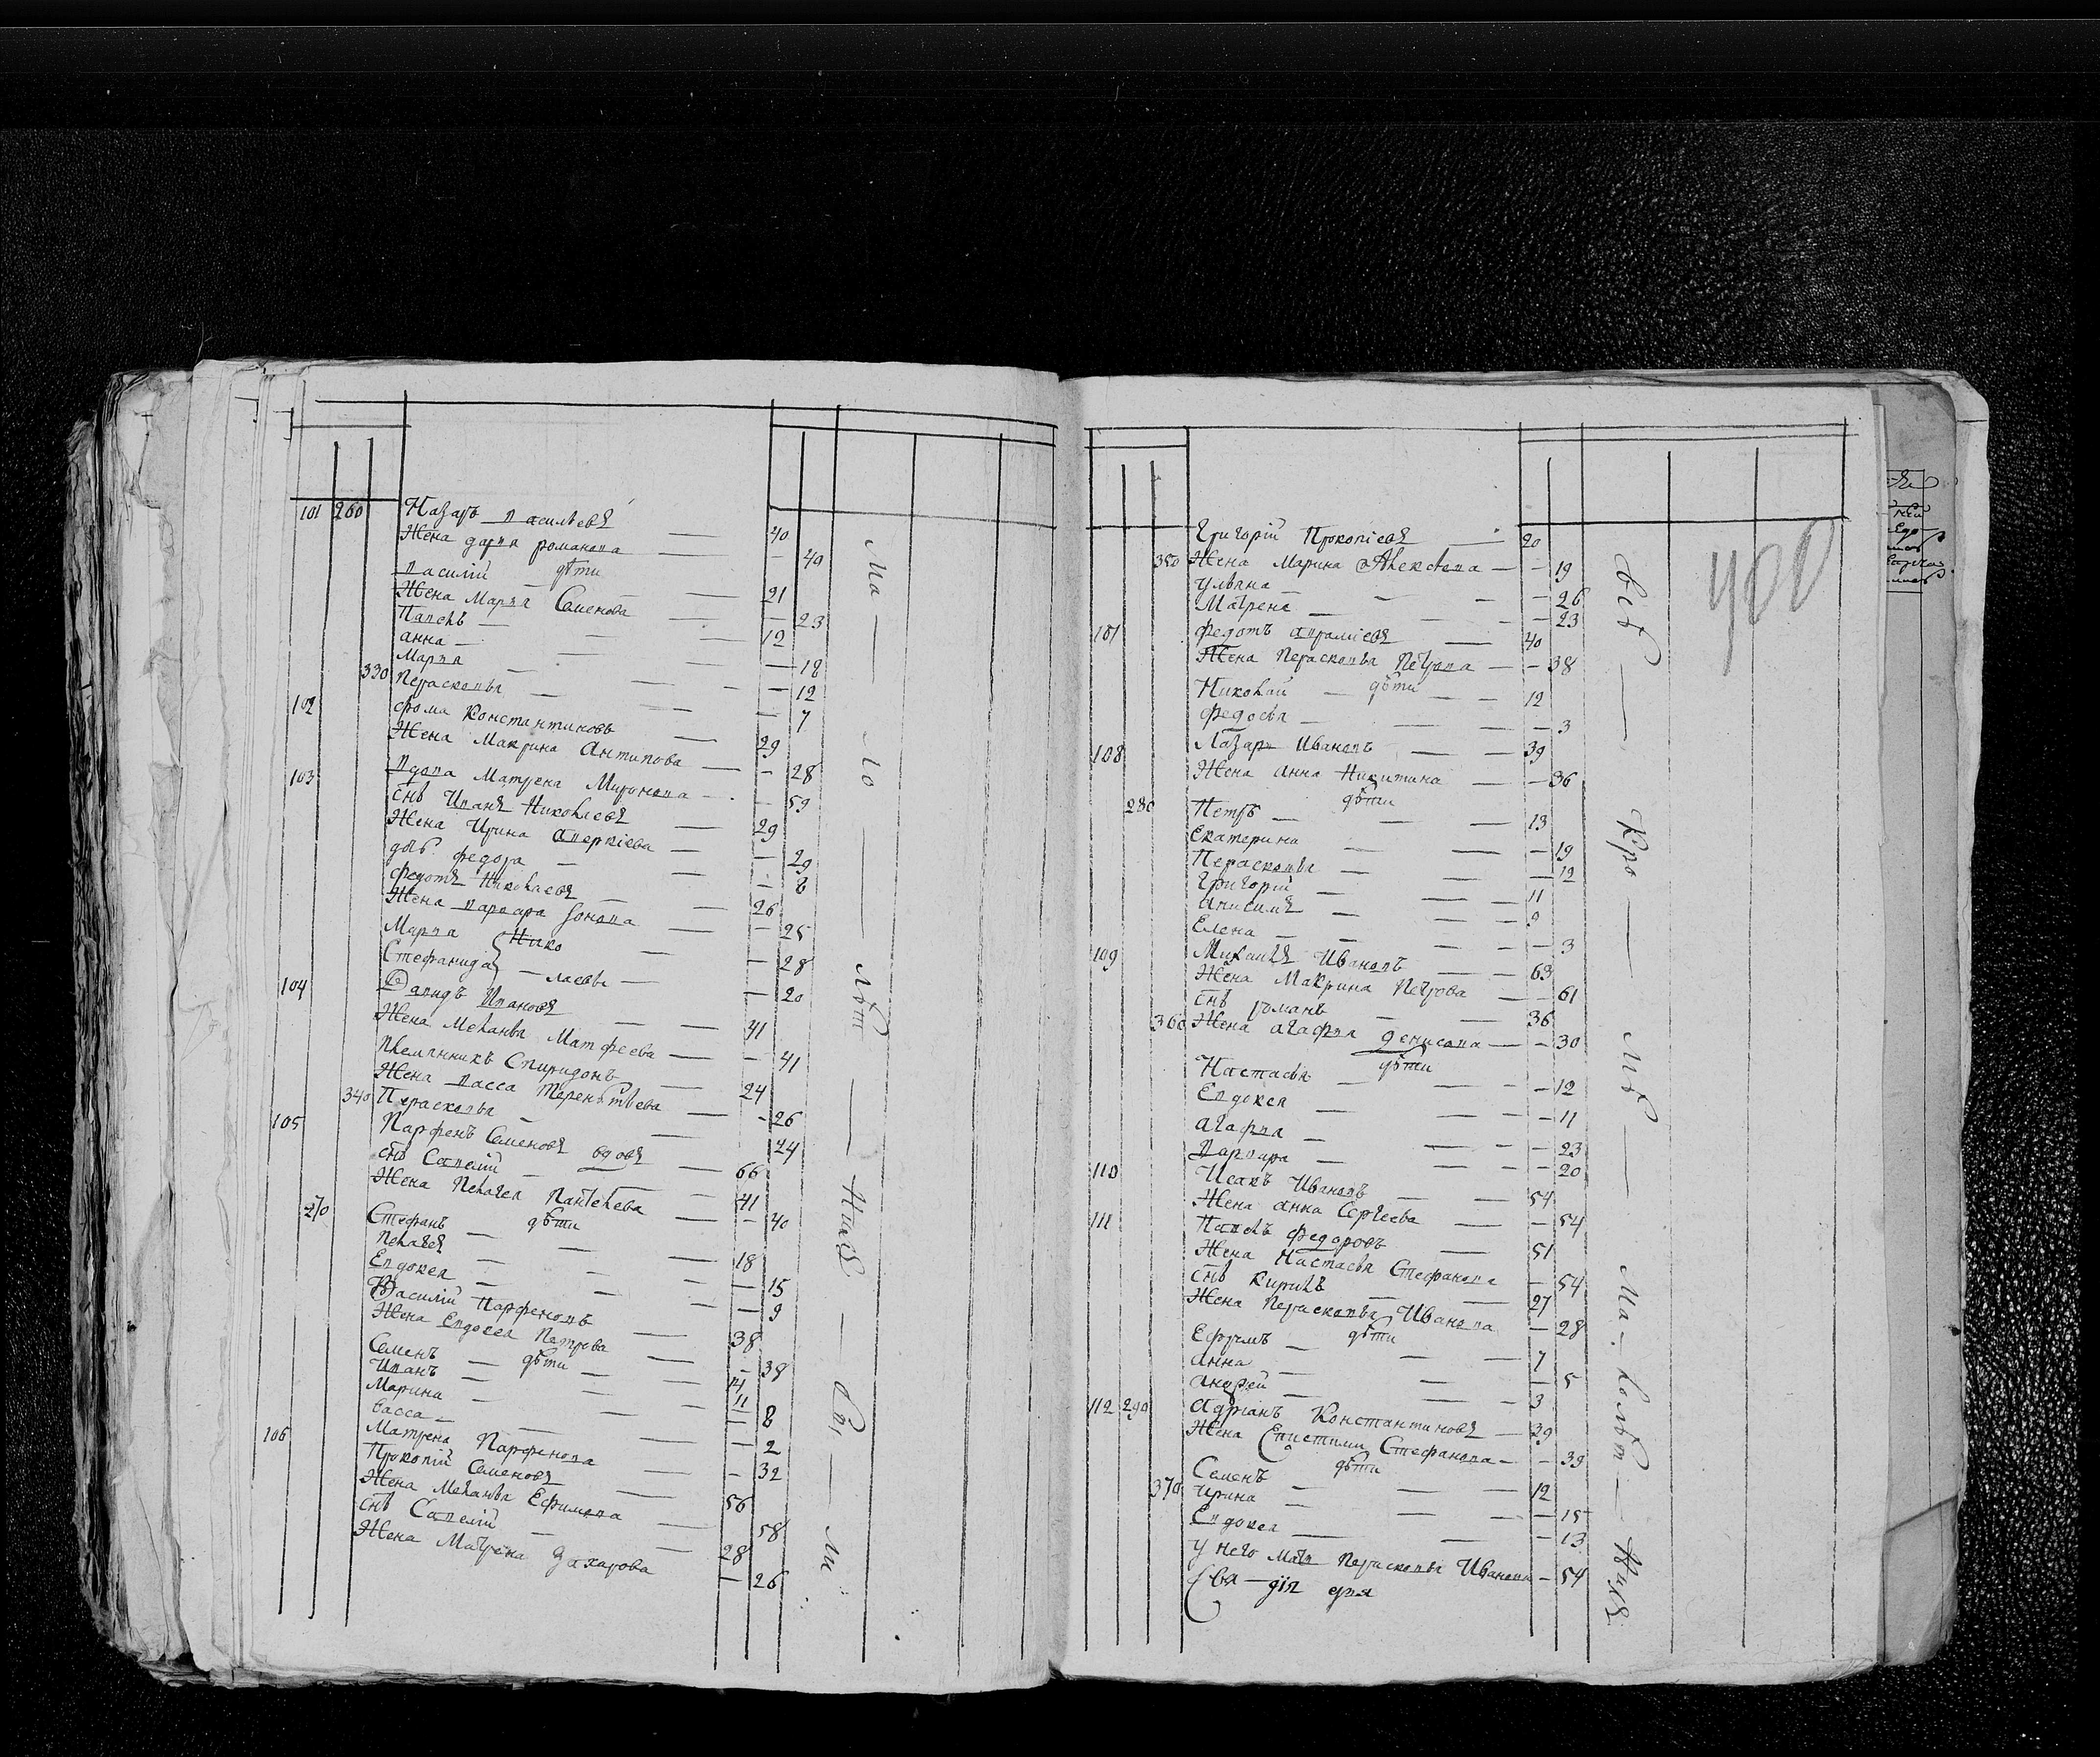 101 260 Назаръ Васильевъ 40
Жена Дарва романова — 40
дѣти
Василій 21
Жена Марва Семенова — 23
Павелъ 12
анна — 18
Марва — 12
330 Перасковья — 7
102 фома Константиновъ 29
Жена Макрина Антипова — 28
103 Вдова Матрена Миронова — 59
снъ Иванъ Николаевъ 29
Жена Ирина Аверкіева — 29
дочь федора — 8
федотъ Николаевъ 26
Жена Варвара Фонова — 25
Марва } Нико — 28
Стефанида } лаевы — 20
104 Давидъ Ивановъ 41
Жена Меланья Матфеева — 41
племянникъ Спиридонъ 24
Жена Васса Терентьева — 26
340 Перасковья 24
105 Парфенъ Семеновъ вдовъ 66
снъ Савелій 41
Жена Пелагея Пантелеева — 40
дѣти
270 Стефанъ 18
Пелагея — 15
Евдокея — 9
Василій Парфеновъ 38
Жена Евдокея Петрова — 38
Семенъ — дѣти 14
Иванъ 11
Марина — 8
Васса — 2
Матрена Парфенова — 32
106 Прокопій Семеновъ 56
Жена Меланья Ефимова 58
снъ Савелій 28
Жена Матрена Захарова — 26
Ма — ло — лѣт — ніиѣ — Св. — ми
400
Григорій Прокопіевъ 20
350 Жена Марина Алексѣева — 19
Ульяна — 26
Матрена — 23
107 федотъ Аврамиевъ 40
Жена Перасковья Петрова — 38
дѣти
Николай 12
федосья — 3
108 Лазарь Ивановъ 39
Жена анна Никитина — 36
дѣти
280 Петръ 13
Екатерина — 19
Перасковья — 12
Григорій 11
Анисимъ 9
Елена — 3
109 Михаилъ Ивановъ 63
Жена Макрина Петрова — 61
снъ романъ 36
360 Жена агафья Денисова — 30
дѣти
Настасья — 12
Евдокея — 11
агафья — 23
Варвара — 20
110 Исакъ Ивановъ 54
Жена анна Сергеева — 54
111 Павелъ федоровъ 51
Жена Настасья Стефанова — 54
снъ Кирилъ 27
Жена Перасковья Иванова — 28
дѣти
Ефремъ 7
анна — 5
андрей 3
112 290 Адріанъ Константиновъ 29
Жена Епистимия Стефанова — 39
дѣти
Семенъ 12
370 Ирина — 15
Евдокея — 13
у него Мать Перасковья Иванова — 54
Кро — мѣ — Ма — лолѣт — ніиѣ